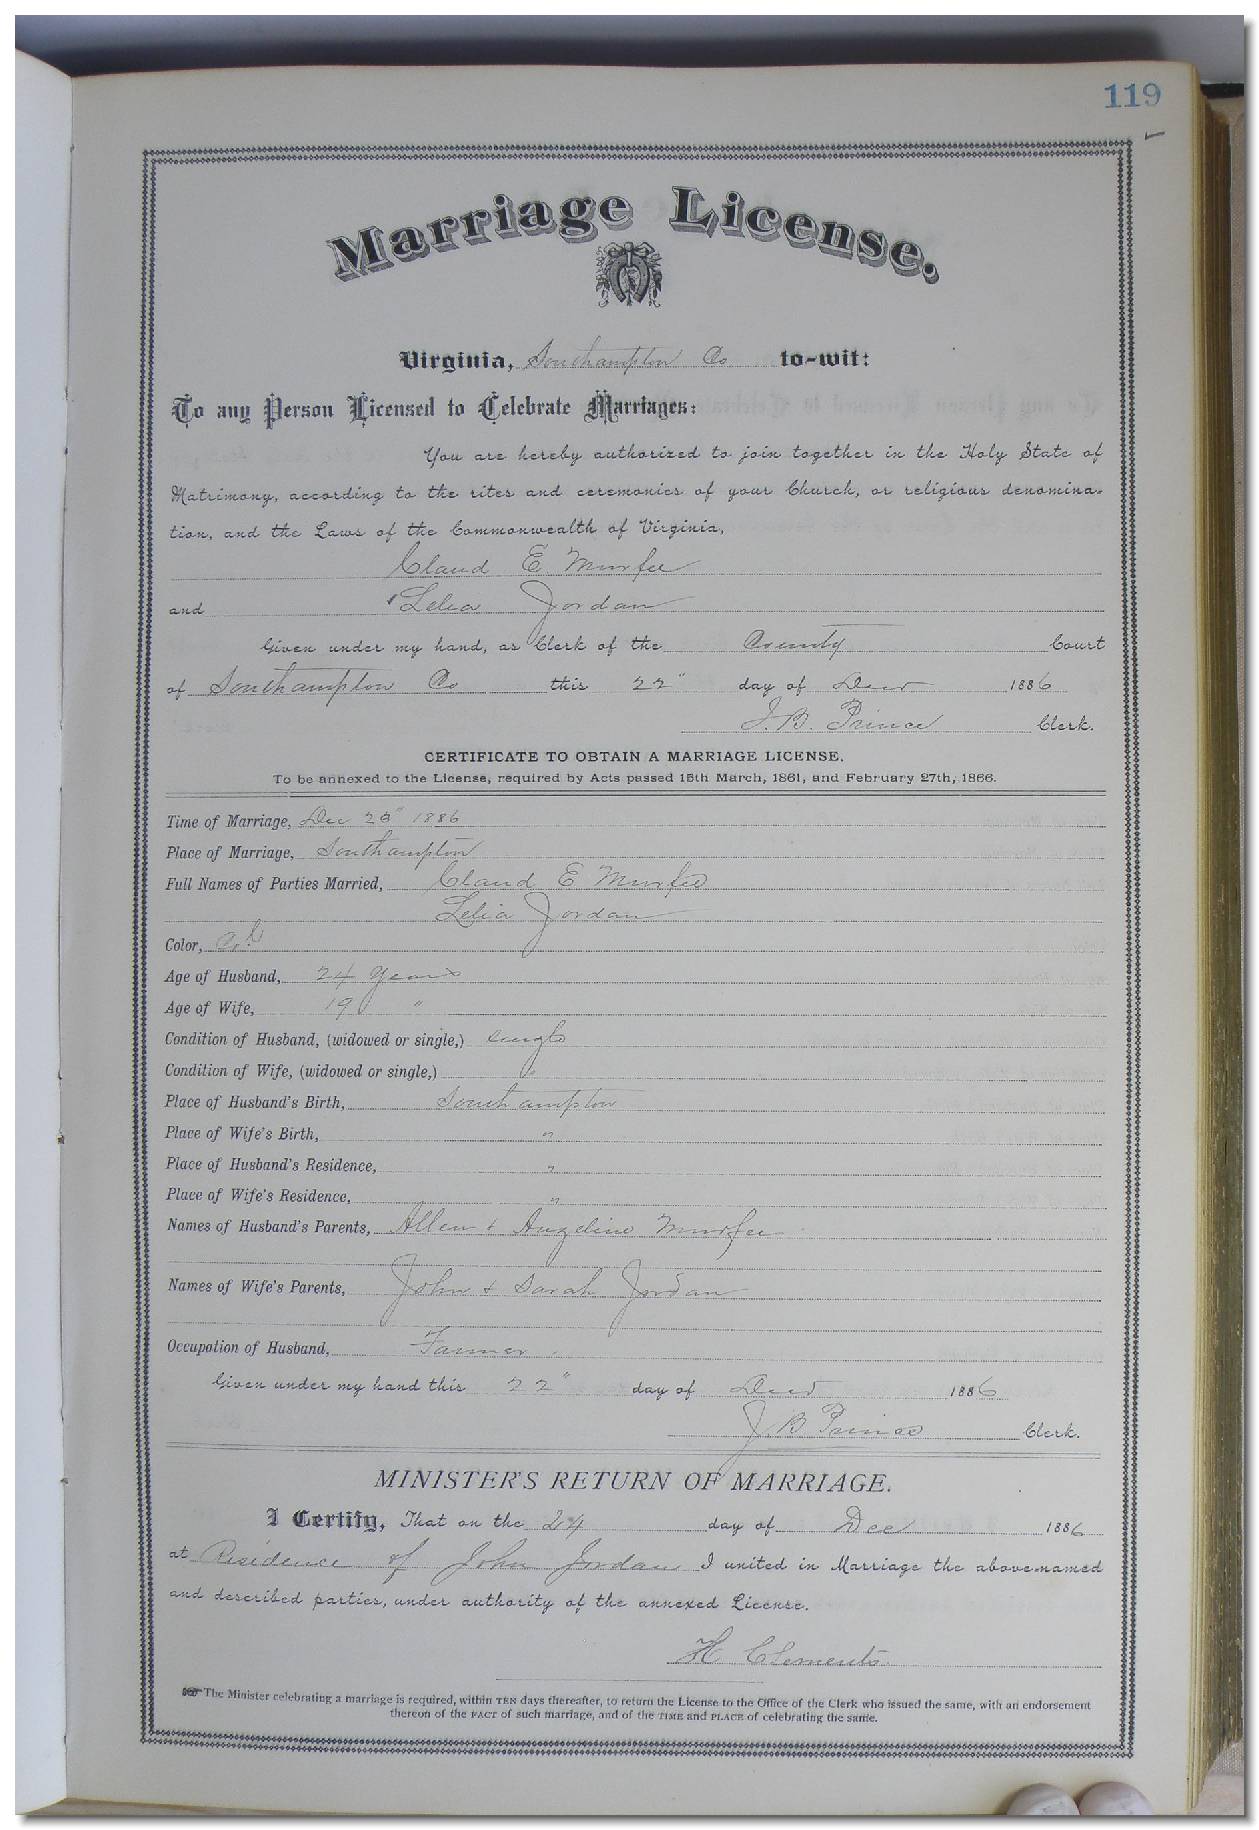 119
Marriage License.
Virginia, Southampton Co to-wit:
To any Person Licensed to Celebrate Marriages:
You are hereby authorized to join together in the Holy State of
Matrimony, according to the rites and ceremonies of your Church, or religious denomina-
tion, and the Laws of the Commonwealth of Virginia,
Claud E. Murfee
and Lelia Jordan
Given under my hand, as Clerk of the County Court
of Southampton Co this 22" day of 1886
J. B. Prince Clerk.
CERTIFICATE TO OBTAIN A MARRIAGE LICENSE,
To be annexed to the License, required by Acts passed 15th March, 1861, and February 27th, 1866.
Time of Marriage, Dec 1886
Place of Marriage, Southampton
Full Names of Parties Married, Claud E Murfee
Lelia Jordan
Color, Col
Age of Husband, 24 years
Age of Wife, 19 "
Condition of Husband, (widowed or single,) single
Condition of Wife, (widowed or single,) "
Place of Husband's Birth, Southampton
Place of Wife's Birth, "
Place of Husband's Residence, "
Place of Wife's Residence, "
Names of Husband's Parents, Allen & Angeline Murfee
Names of Wife's Parents, John & Sarah Jordan
Occupation of Husband, Farmer
Given under my hand this 22" day of 1886
J. B Prince Clerk.
MINISTER'S RETURN OF MARRIAGE.
I Certify, That on the 24 day of Dec 1886
at Residence of John Jordan I united in Marriage the above-named
and described parties, under authority of the annexed License.
H Clements
The Minister celebrating a marriage is required, within TEN days thereafter, to return the License to the Office of the Clerk who issued the same, with an endorsement
thereon of the FACT of such marriage, and of the TIME and PLACE of celebrating the same.